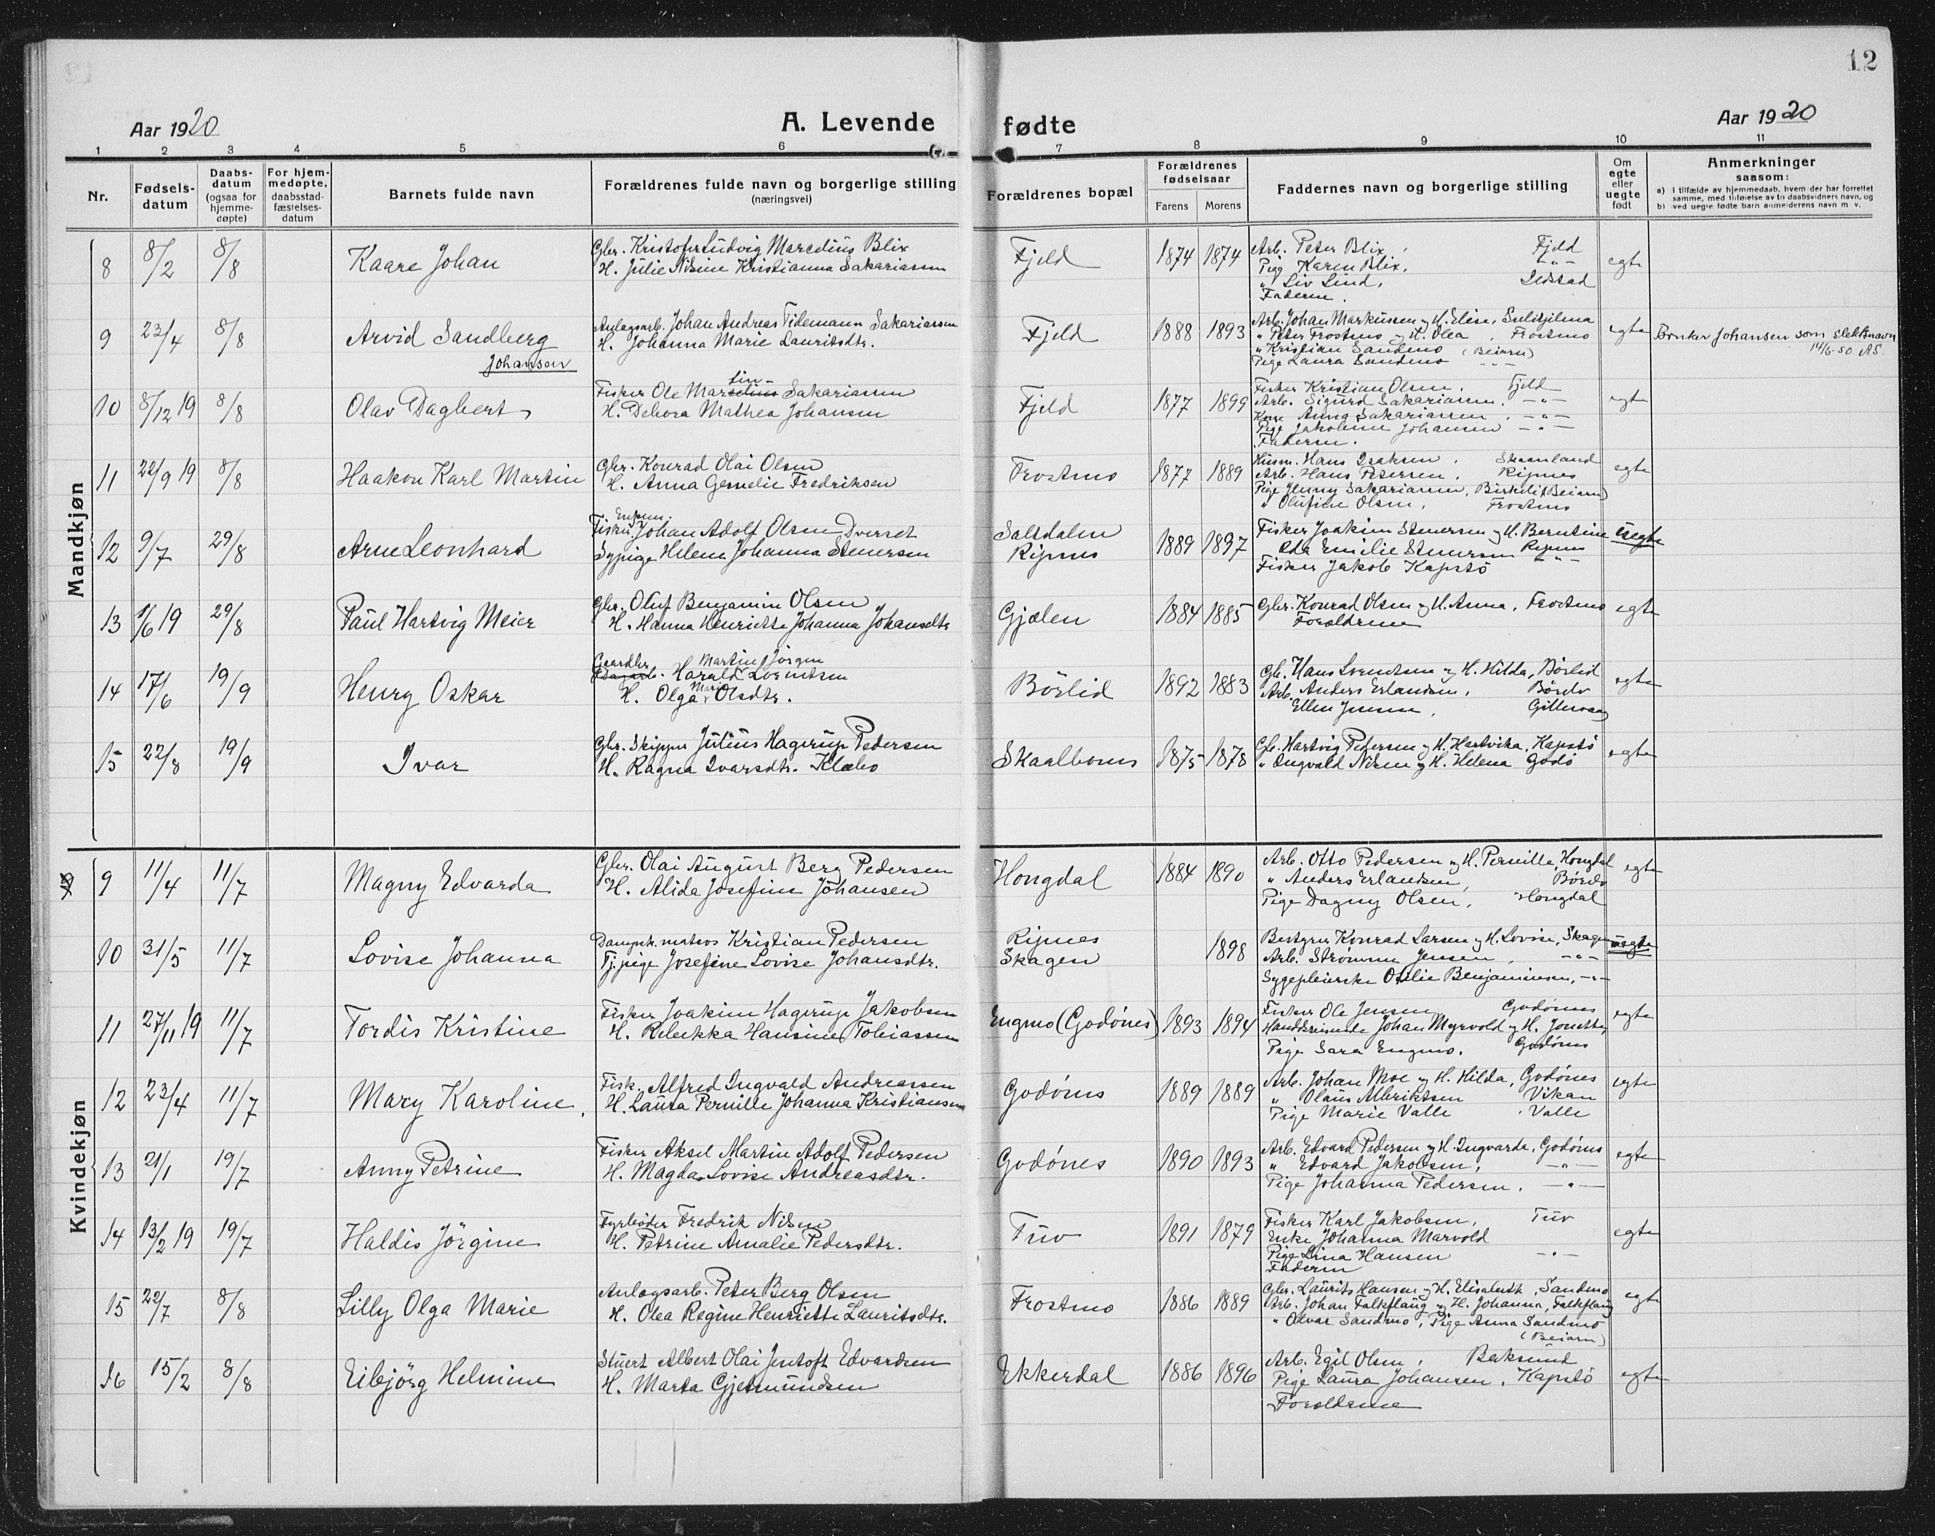 12
Aar 1920
A. Levende fødte
Aar 1920
1 2 3 4 5 6 7 8 9 10 11
Nr.
Fødselsdatum
Daabsdatum (ogsaa for hjemmedøpte)
For hjemmedøpte, daabsstadfæstelsesdatum
Barnets fulde navn
Forældrenes fulde navn og borgerlige stilling (næringsvei)
Forældrenes bopæl
Forældrenes fødselsaar
Farens Morens
Faddernes navn og borgerlige stilling
Om egte eller uegte født
Anmerkninger saasom:
a) I tilfælde av hjemmedaab, hvem der har forrettet samme, med tilføielse av to daabsvidners navn, og
b) ved uegte fødte barn anmelderens navn m. v.
Mandkjøn
8 8/2 8/8 Kaare Johan
Gbr. Kristofer Ludvig Marcelius Blix
H. Julie Nisine Kristianna Sakariassen
Fjeld 1874 1874
Arb. Peter Blix, Fjeld
Pige Karen Blix, -"-
" Liv Lind, Ildstad
Faderen.
egte
9 23/4 8/8 Arvid Sandberg
Johansen
Anlagsarb. Johan Andreas Tidemann Sakariassen
H. Johanna Marie Lauritsdtr.
Fjeld 1888 1893
Arb. Johan Markussen og H. Elise, Sulitjelma
" Peter Frostmo og H. Olea, Frostmo
" Kristian Sandmo (Beiarn)
Pige Laura Sandmo -"-
egte
Bruker Johansen som slektsnavn
14/6-50 AS.
10 8/12 19 8/8 Olav Dagbert
Fisker Ole Marselius Sakariassen
H. Debora Mathea Johansen
Fjeld 1877 1899
Fisker Kristian Olsen, Fjeld
Arb. Sigurd Sakariassen, -"-
Kone Anna Sakariassen, -"-
Pige Jakobine Johansen -"-
Faderen.
egte
11 22/9 19 8/8 Haakon Karl Martin
Gbr. Konrad Olai Olsen
H. Anna Gemelie Fredriksen
Frostmo 1877 1889
Husm. Hans Isaksen, Skaanland
Arb. Hans Petersen, Ripnes
Pige Jenny Sakariassen, Birkeli (Beiarn)
" Olufine Olsen, Frostmo
egte
12 9/7 29/8 Arne Leonhard
Fisker Johan Adolf Olsen Dverset
Sypige Helene Johanna Stenersen
Saltdalen
Ripnes
1889 1897
Fisker Joakim Stenersen og H. Berntine
Eda Emelie Stenersen Ripnes
Fisker Jakob Kapstø -"-
uegte
13 1/6 19 29/8 Paul Hartvig Meier
Gbr. Oluf Benjamin Olsen
H. Hanna Henriette Johanna Johansdtr
Gjælen 1884 1885
Gbr. Konrad Olsen og H. Anna, Frostmo
Forældrene
egte
14 17/6 19/9 Henry Oskar
Gaardbr. Martin Jørgen
Harald Lorentsen
H. Olga Marie Olsdtr.
Børlid 1892 1883
Gb. Hans Svendsen og H. Hilda, Børlid
Arb. Anders Erlandsen, Børdv
Ellen Jensen, Gillesvaag
egte
15 22/8 19/9 Ivar
Gbr. Skipper Julius Hagerup Pedersen
H. Ragna Ivarsdtr. Klæbo
Skaalbones 1875 1878
Gb. Hartvig Pedersen og H. Hartvika, Kapstø
" Ingvald Nilsen og H. Helena Godø
egte
Kvindekjøn
9 11/4 11/7 Magny Edvarda
Gbr. Olai August Berg Pedersen
H. Alida Josefine Johansen
Hongdal 1884 1890
Arb. Otto Pedersen og H. Pernille, Hongdal
" Anders Erlandsen, Børdv
Pige Dagny Olsen, Hongdal
egte
10 31/5 11/7 Lovise Johanna
Dampsk. matros Kristian Pedersen
Tj.pige Josefine Lovise Johansdtr.
Ripnes
Skagen
1898
Bestyrer Konrad Larsen og H. Lovise, Skagen
Arb. Strømme Jensen, -"-
Sygepleierske Otilie Benjaminsen, -"-
uegte
11 27/11 19 11/7 Tordis Kristine
Fisker Joakim Hagerup Jakobsen
H. Rebekka Hansine Tobiassen
Engmo (Godønes) 1893 1894
Fisker Ole Jensen Godønes
Handelsreisende Johan Myrvold og H. Jonette, Godønes
Pige Sara Engmo.
egte
12 23/4 11/7 Mary Karoline,
Fisk. Alfred Ingvald Andreassen
H. Laura Pernille Johanna Kristiansen
Godønes 1889 1889
Arb. Johan Moe og H. Hilda, Godønes
" Olaus Albriktsen Vikan
Pige Marie Valle, Valle
egte
13 21/1 19/7 Anny Petrine
Fisker Aksel Martin Adolf Pedersen
H. Magda Lovise Andreasdtr.
Godønes 1890 1893
Arb. Edvard Pedersen og H. Ingvarda, Godønes
" Edvard Jakobsen, -"-
Pige Johanna Pedersen. -"-
egte
14 13/2 19 19/7 Haldis Jörgine
Fyrbøder Fredrik Nilsen
H. Petrine Amalie Pedersdtr.
Tuv 1891 1879
Fisker Karl Jakobsen, Tuv
Enke Johanna Marvold
Pige Lina Hansen -"-
Faderen
egte
15 22/7 8/8 Lilly Olga Marie
Anlagsarb. Peter Berg Olsen
H. Olea Regine Henriette Lauritsdtr.
Frostmo 1886 1889
Gbr. Laurits Hansen og H. Elisabeth, Sandmo
Arb. Johan Falkflaug og H. Johanna, Falkflaug
" Olvar Sandmo, Pige Anna Sandmo
(Beiarn)
egte
16 15/2 8/8 Eibjörg Helmine
Stuert Albert Olai Jentoft Edvardsen
H. Marta Gjermundsen
Ekkerdal 1886 1896
Arb. Egil Olsen, Baksund
Pige Laura Johansen, Kapstø
Forældrene
egte